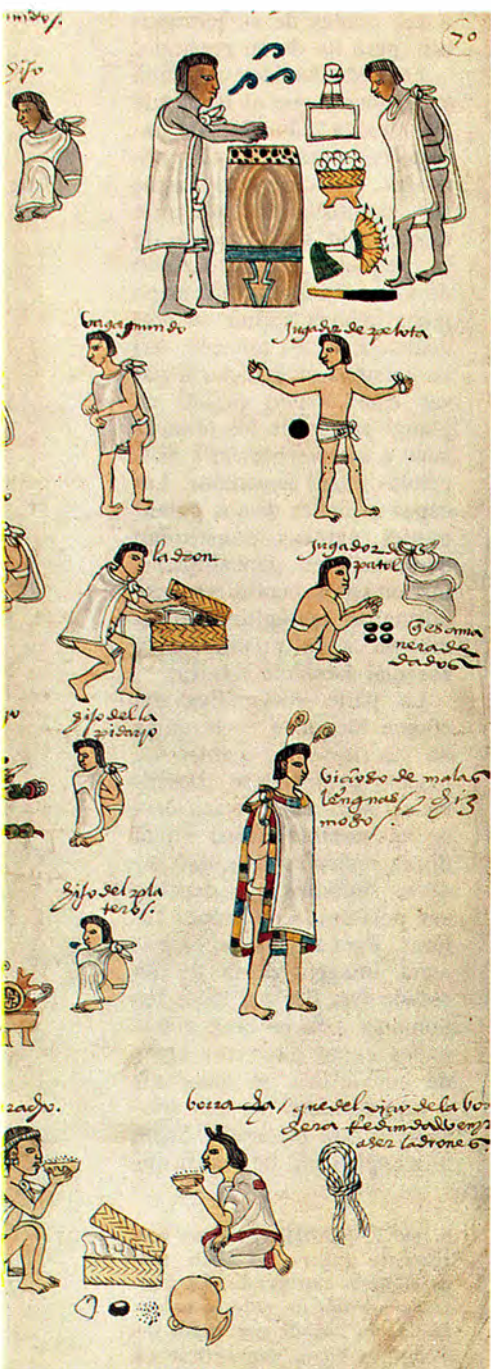 70
hijo
vagamundo
jugador de pelota
ladron
jugador de
patol
q̃ es a ma
nera de
dados
hijo del la
pidario
vicioso de malas
lenguas / y chis
moso /.
hijo del pla
teros.
borracha / que del vicio de la bor
chera
a ser ladrones.